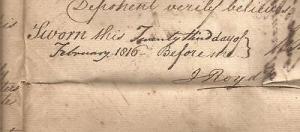 Deponent verily believes
Sworn this Twenty third day of
February 1816 Before me
J Royd